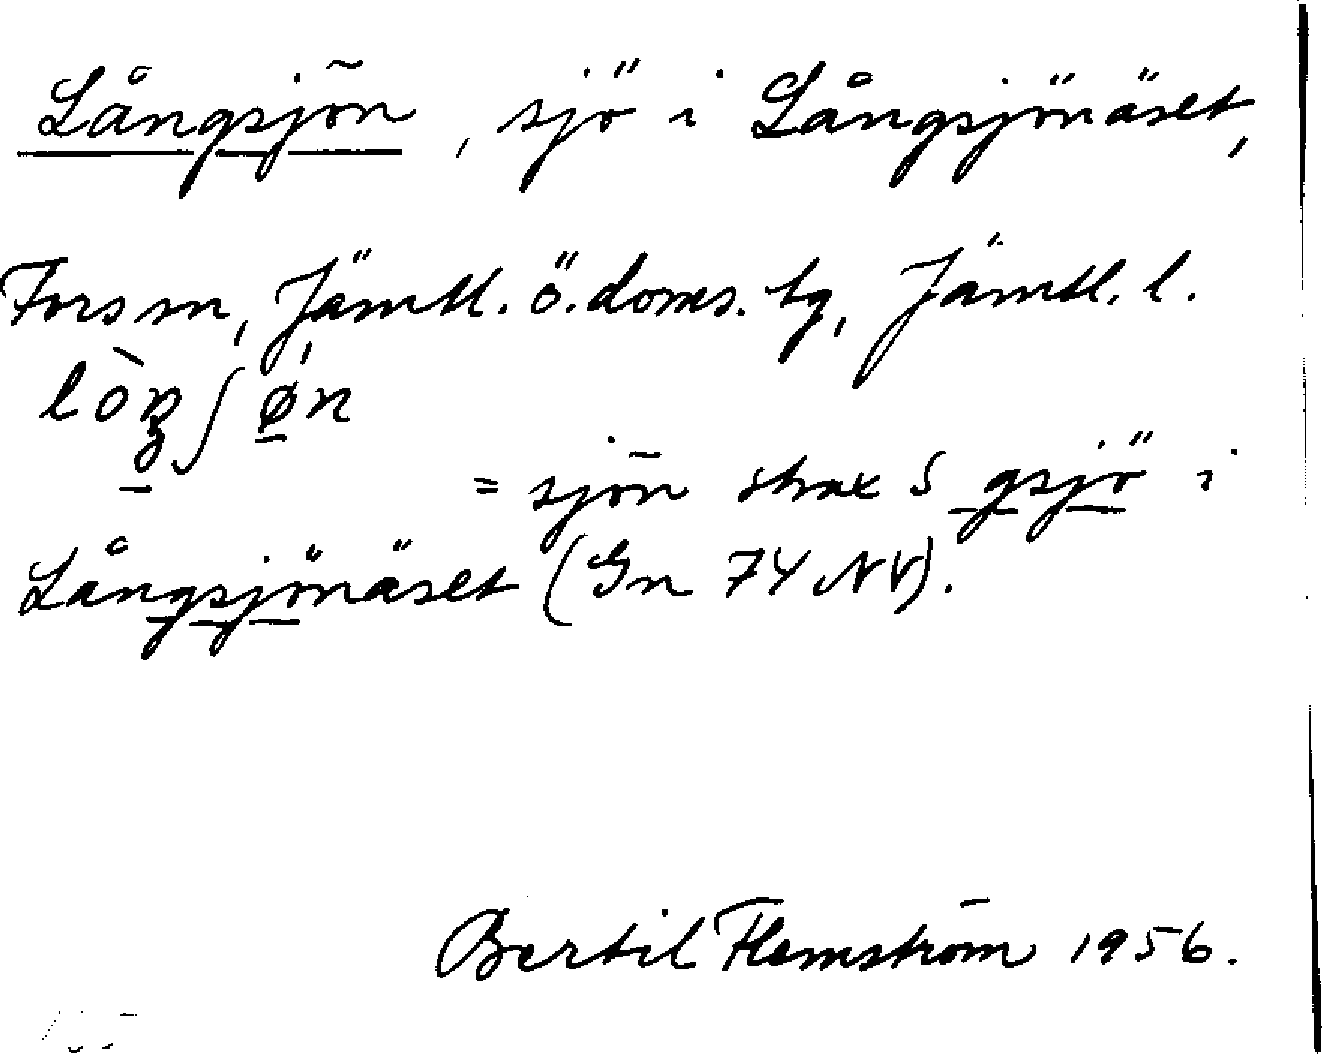 Långsjön, sjö i Långsjönäset,
Fors sn, Jämtl. ö. doms. tg, Jämtl. l.
= sjön strax S gsjö i
Långsjönäset (Gn 74 NV).
Bertil Flemström 1956.